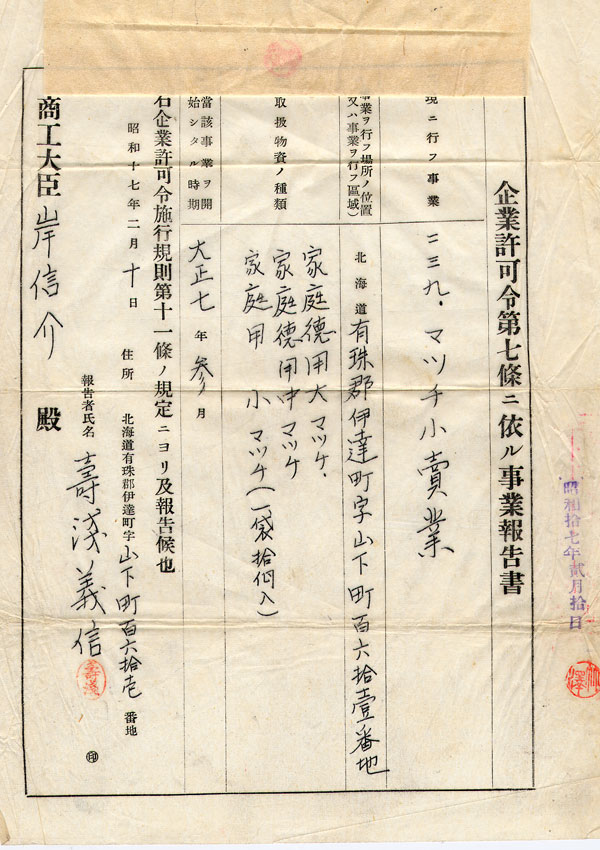 昭和拾七年貳月拾日
企業許可令第七條ニ依ル事業報告書
現ニ行フ事業
二三九．マツチ小賣業
事業ヲ行フ場所ノ位置
又ハ事業ヲ行フ區域)
北海道有珠郡伊達町字山下町百六拾壹番地
取扱物資ノ種類
家庭德用大マツチ．
家庭德用中マツチ
家庭用小マツチ(一袋拾個入)
當該事業ヲ開
始シタル時期
大正七年参月
右企業許可令施行規則第十一條ノ規定ニヨリ及報告候也
昭和十七年二月十日
住所 北海道有珠郡伊達町字山下町百六拾壱番地
報告者氏名 壽淺義信 壽淺 ㊞
商工大臣岸信介殿